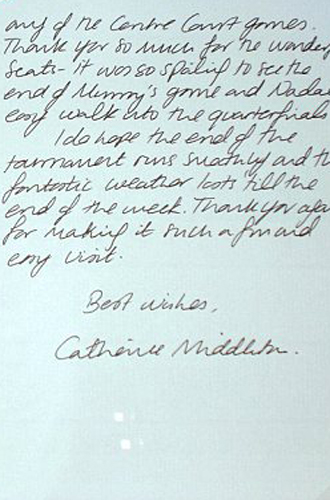 any of the Centre Court games.
Thank you so much for the wonder
seats - it was so spoiling to see the
end of Murray's game and Nadal
easy walk into the quarterfinals
I do hope the end of the
tournament runs smoothly and th
fantastic weather lasts till the
end of the week. Thank you agai
for making it such a fun and
easy visit.
Best wishes,
Catherine Middleton.